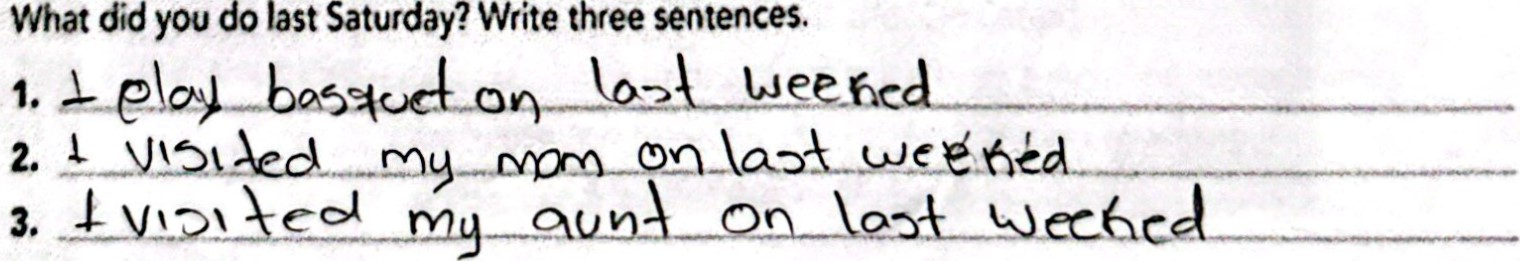 What did you do last Saturday? Write three sentences.
1. I play basquet on last weeked
2. I visited my mom on last weeked
3. I visited my aunt on last weeked